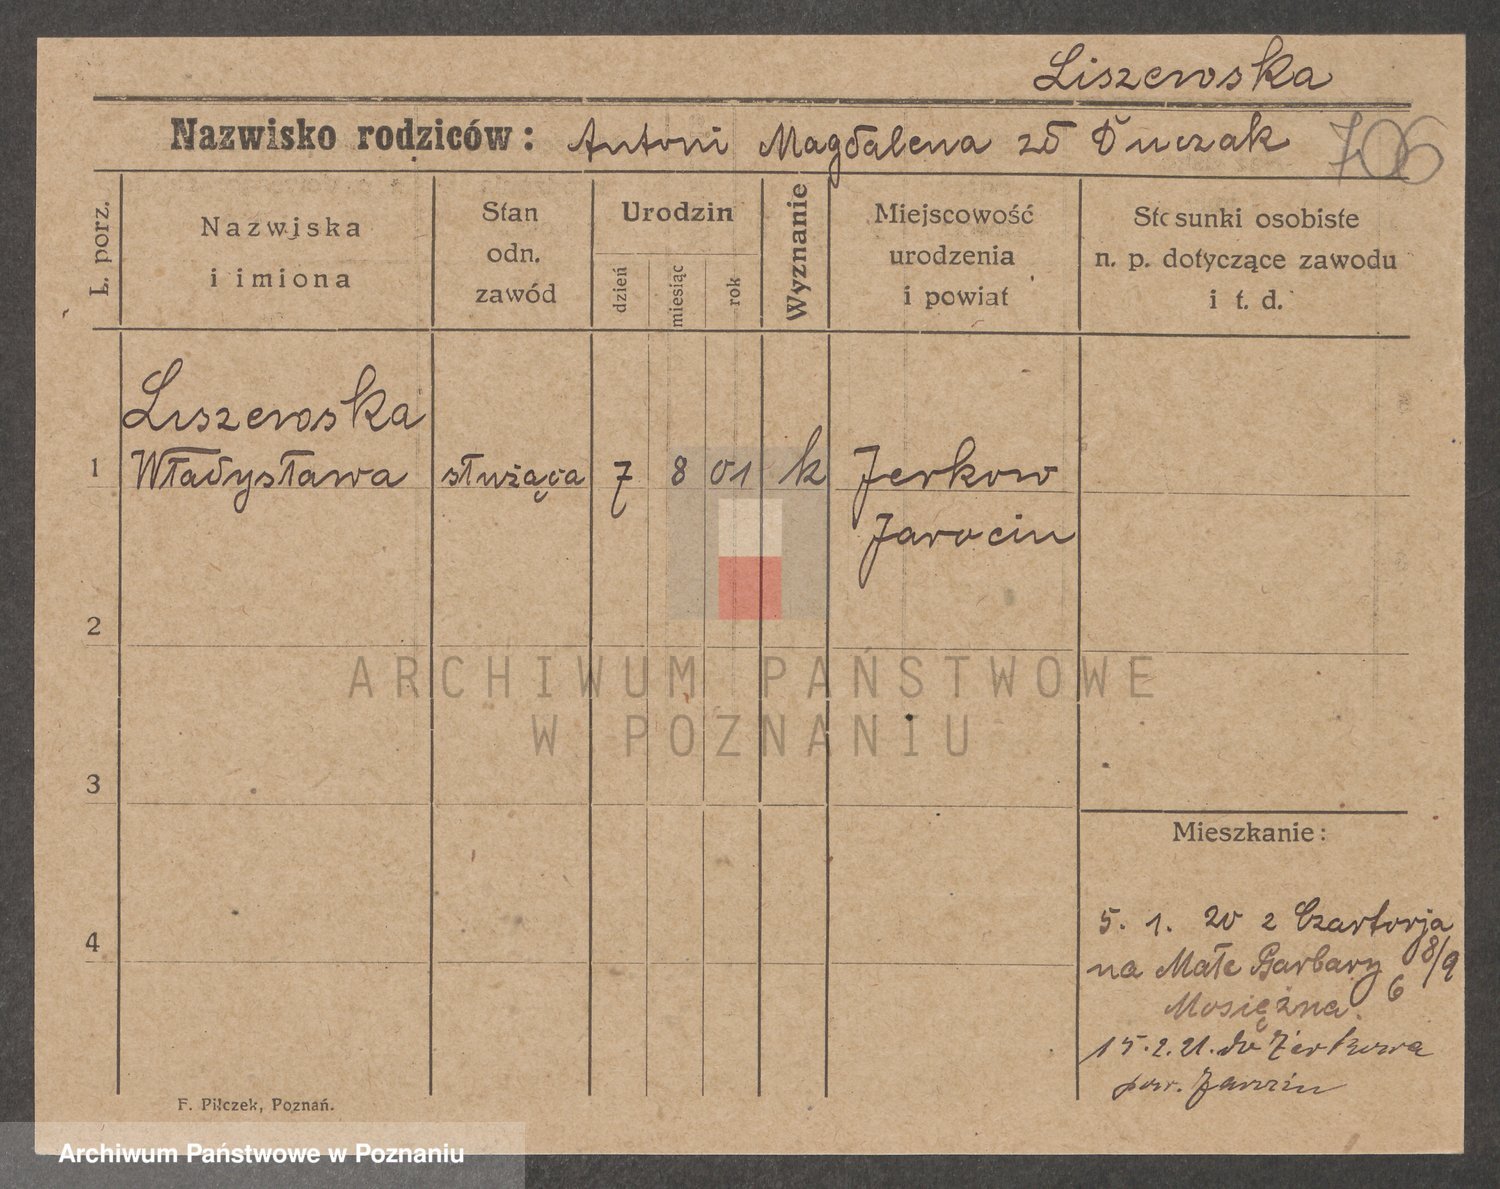 Liszewska
Nazwisko rodziców: Antoni Magdalena zd Duczak 706
L. porz.
Nazwiska
i imiona
Stan
odn.
zawód
Urodzin
dzień
miesiąc
rok
Wyznanie
Miejscowość
urodzenia
i powiat
Stosunki osobiste
n. p. dotyczące zawodu
i t. d.
Liszewska
1 Władysława służąca 7 8 01 k Jerkow
Jarocin
2
ARCHIWUM PAŃSTWOWE
W POZNANIU
3
Mieszkanie:
5. 1. 20 z Czartorja
4
na Małe Garbary 8/9
Mosiężna 6
15.2.21. do Żerkowa
pow. Jarocin
F. Pilczek, Poznań.
Archiwum Państwowe w Poznaniu